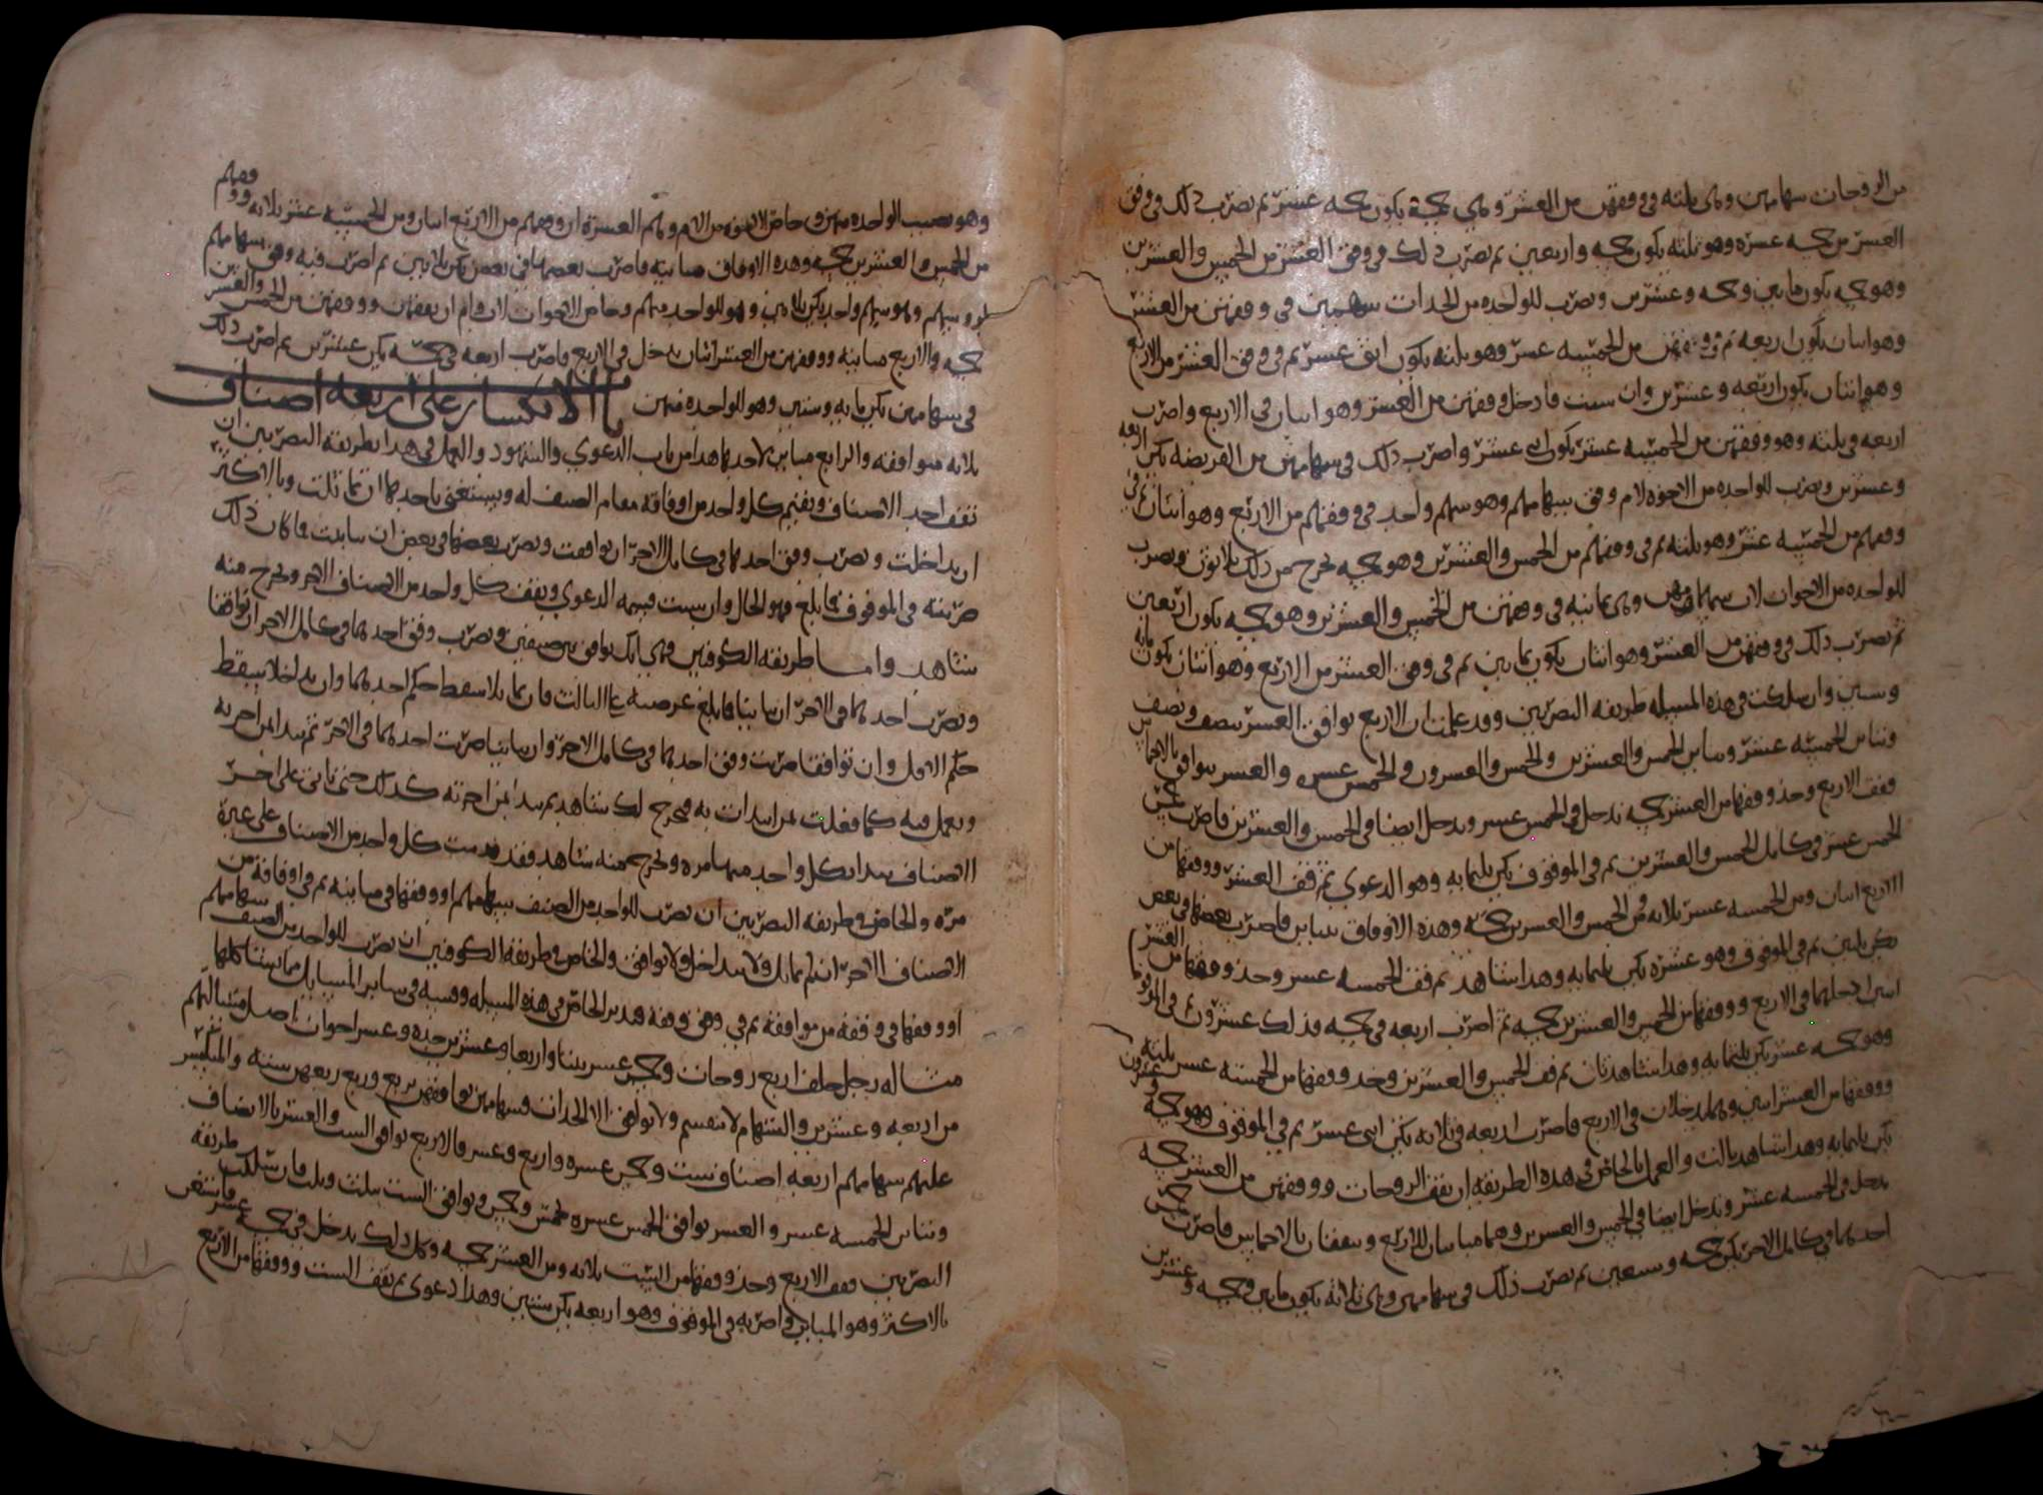 من الزوجات سهامهن وهي ثلثه في وفقهن من العشر وهي خمسة يكون خمسه عشر ثم تضرب ذلك في وفق
العشر من خمسه عشره وهو ثلثه يكون خمسه واربعين ثم تضرب ذلك في وفق العشر من الخمس والعشرين
وهو خمسه يكون مايتي وخمسه وعشرين وتضرب للواحده من الجدات سهمين في وفقهن من العشر
وهو اثنان يكون اربعه ثم في وفقهن من الخمسه عشر وهو ثلثه يكون اثنى عشر ثم في وفق العشر من الاربع
وهو اثنان يكون اربعه وعشرين وان شيت فادخل وفقهن من العشر وهو اثنان في الاربع واضرب
اربعه في ثلثه وهو وفقهن من الخمسه عشر يكون اثنى عشر واضرب ذلك في سهامهن من الفريضه يكن اربعه
وعشرين وتضرب للواحده من الاخوه لام وفق سهامهم وهو سهم واحد في وفقهم من الاربع وهو اثنان ثم في
وفقهم من الخمسه عشر وهو ثلثه ثم في وفقهم من الخمس والعشرين وهو خمسه يخرج من ذلك ثلاثون وتضرب
للواحده من الاخوات لاب سهامهن وهي ثمانيه في وفقهن من الخمس والعشرين وهو خمسه يكون اربعين
ثم تضرب ذلك في وفقهن من العشر وهو اثنان يكون ثمانين ثم في وفق العشر من الاربع وهو اثنان يكون مايه
وستين وان سلكت في هذه المسله طريقه البصريين وقد علمت ان الاربع توافق العشر بنصف ونصف
وتباين الخمسه عشر وتباين الخمس والعشرين والخمس والعشرون والخمس عشر والعشر يتوافق بالاخماس
فقف الاربع وخذ وفقها من العشر خمسه تدخل في الخمس عشر وتدخل ايضا في الخمس والعشرين فاضرب خمس
الخمس عشر في كامل الخمس والعشرين ثم في الموقوف يكن ثلثمايه وهو الدعوى ثم تقف العشر ووفقها من
الاربع اثنان ومن الخمسه عشر ثلاثه ومن الخمس والعشرين خمسه وهذه الاوفاق تتباين فاضرب بعضها في بعض
يكن ثلثين ثم في الموقوف وهو عشره يكن ثلثمايه وهذا شاهد ثم قف الخمسه عشر وخذ وفقها من العشر
اثنين ادخلهما في الاربع ووفقها من الخمس والعشرين خمسه ثم اضرب اربعه في خمسه فذلك عشرون في الموقوف
وهو خمسه عشر يكن ثلثمايه وهذا شاهد ثان ثم قف الخمس والعشرين وخذ وفقها من الخمسه عشر ثلثه
ووفقها من العشر اثنين وهما يدخلان في الاربع فاضرب اربعه في ثلاثه يكن اثنى عشر ثم في الموقوف وهو خمسه وعشرون
يكن ثلثمايه وهذا شاهد ثالث والعمل بالخاص في هذه الطريقه ان تقف الزوجات ووفقهن من العشر خمسه
تدخل في الخمسه عشر وتدخل ايضا في الخمس والعشرين وهما مباينان للاربع ويتفقان بالاخماس فاضرب خمس
احدهما في كامل الاخر يكن خمسه وسبعين ثم تضرب ذلك في سهامهن وهي ثلاثه يكون مايتي وخمسه وعشرين
وهو نصيب الواحده منهن وخاص الاخوه من الام وفقهم العشره ان وفقهم من الاربع اثنان ومن الخمسه عشر ثلاثه ووفقهم
من الخمس والعشرين خمسه وهذه الاوفاق متباينه فاضرب بعضها في بعض يكن ثلاثين ثم اضرب فيه وفق سهامهم
وهو سهم واحد يكن ثلاثين وهو للواحد منهم وخاص الاخوات لاب وام ان تقفهن ووفقهن من الخمس والعشرين
خمسه والاربع مباينه ووفقهن من العشر اثنان يدخل في الاربع فاضرب اربعه في خمسه يكن عشرين ثم اضرب ذلك
في سهامهن يكن مايه وستين وهو للواحده منهن باب الانكسار على اربعه اصناف
ثلاثه متوافقه والرابع مباين لاحدها هذا من باب الدعوي والشهود والعمل في هذا بطريقه البصريين ان
تقف احد الاصناف وتقيم كل واحد من اوفاقه مقام الصنف له ويستغنى باحدهما ان تماثلت وبالاكثر
ان تداخلت وتضرب وفق احدهما في كامل الاخر ان توافقت وتضرب بعضها في بعض ان تباينت فما كان ذلك
ضربته في الموقوف فما بلغ فهو المال وان شيت قسمه الدعوي وتقف كل واحد من الاصناف الاخر ويخرج منه
شاهد واما طريقه الكوفيين فهي انك توافق بين صنفين وتضرب وفق احدهما في كامل الاخر ان توافقا
وتضرب احدهما في الاخر ان تباينا فما بلغ عرضته على الثالث فان تماثلا سقط حكم احدهما وان تداخلا سقط
حكم الاقل وان توافقا ضربت وفق احدهما في كامل الاخر وان تباينا ضربت احدهما في الاخر ثم تبدا بمن اخرته
وتعمل فيه كما فعلت بمن ابدات به فيخرج لك شاهد ثم تبدا بمن اخرته كذلك حتى تاتى على اخر
الاصناف تبدا بكل واحد منها مره ويخرج منه شاهد فقد قدمت كل واحد من الاصناف على غيره
مره والخاص في طريقه البصريين ان تضرب للواحد من الصنف سهامهم او وفقها في مباينه ثم في اوفاقه من
الاصناف الاخر ان لم تماثل ولا تداخل ولا توافق والخاص في طريقه الكوفيين ان تضرب للواحد من الصنف سهامهم
او وفقها في وفقه من موافقه ثم في وفق وفقه
مثاله رجل خلف اربع زوجات وخمس عشر بنتا واربعا وعشرين جده وعشر اخوات اصل مسالتهم
من اربعه وعشرين والسهام لا تنقسم ولا توافق الا الجدات
عليهم سهامهم اربعه اصناف ست وخمس عشره واربع وعشر فالاربع توافق الست والعشر بالانصاف
وتباين الخمسه عشر والعشر توافق الخمس عشره بخمس وخمس وتوافق الست بثلث وثلث فان سلكت طريقه
البصريين فقف الاربع وخذ وفقها من الست ثلاثه ومن العشر خمسه وكل ذلك يدخل في خمسه عشر فاستغن
بالاكثر وهو المباين واضربه في الموقوف وهو اربعه يكن ستين وهذا دعوى ثم تقف الست ووفقها من الاربع